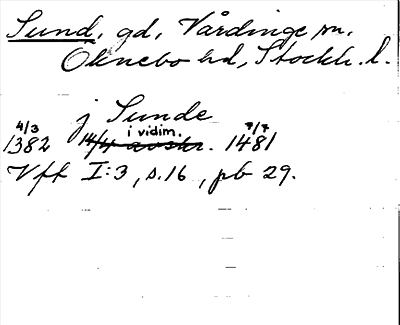 Sund, gd, Vårdinge sn.
Öknebo hd, Stockh. l.
j Sunde
4/3 1382 i vidim. 7/7 1481
Vff I:3, s.16, pb 29.